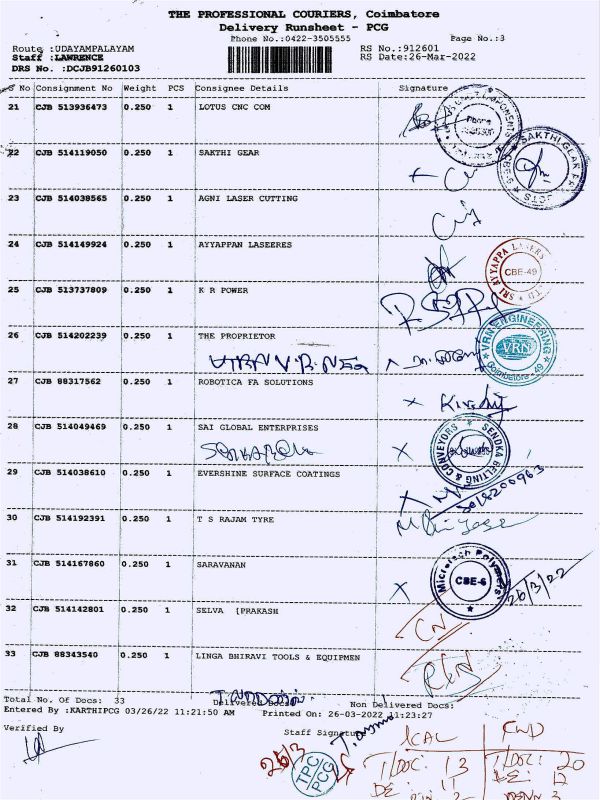 THE PROFESSIONAL COURIERS, Coimbatore
Delivery Runsheet - PCG
Phone No.:0422-3505555
Page No.:3
Route :UDAYAMPALAYAM
RS No.:912601
Staff :LAWRENCE
RS Date:26-Mar-2022
DRS No. :DCJB91260103
S No Consignment No Weight PCS Consignee Details Signature
21 CJB 513936473 0.250 1 LOTUS CNC COM
22 CJB 514119050 0.250 1 SAKTHI GEAR
SAKTHI GEAR
23 CJB 514038565 0.250 1 AGNI LASER CUTTING
24 CJB 514149924 0.250 1 AYYAPPAN LASEERES
SRI AYYAPPA LASERS
CBE-49
25 CJB 513737809 0.250 1 K R POWER
26 CJB 514202239 0.250 1 THE PROPRIETOR
VRN ENGINEERING
VRN
Coimbatore - 49
27 CJB 88317562 0.250 1 ROBOTICA FA SOLUTIONS
28 CJB 514049469 0.250 1 SAI GLOBAL ENTERPRISES
SENDKA BELTING & CONVEYORS
29 CJB 514038610 0.250 1 EVERSHINE SURFACE COATINGS
30 CJB 514192391 0.250 1 T S RAJAM TYRE
31 CJB 514167860 0.250 1 SARAVANAN
Microtech Polymers
CBE-6
26/3/22
32 CJB 514142801 0.250 1 SELVA [PRAKASH
CN
33 CJB 88343540 0.250 1 LINGA BHIRAVI TOOLS & EQUIPMEN
Total No. Of Docs: 33 Delivered Docs: Non Delivered Docs:
Entered By :KARTHIPCG 03/26/22 11:21:50 AM Printed On: 26-03-2022 11:23:27
Verified By
Staff Signature
26/3
TPC
PCG
LCAL FWD
T/DOC: 13 T/DOC: 20
DE: 11 DE: 12